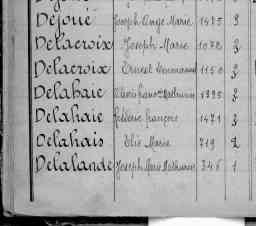 Déjoué Joseph Ange Marie 1435 3
Delacroix Joseph Marie 1072 3
Delacroix Ernest 1150 3
Delahaie Mathurin 1395 3
Delahaie françois 1471 3
Delahais Elie Marie 719 2
Delalande Joseph Marie Mathurin 346 1